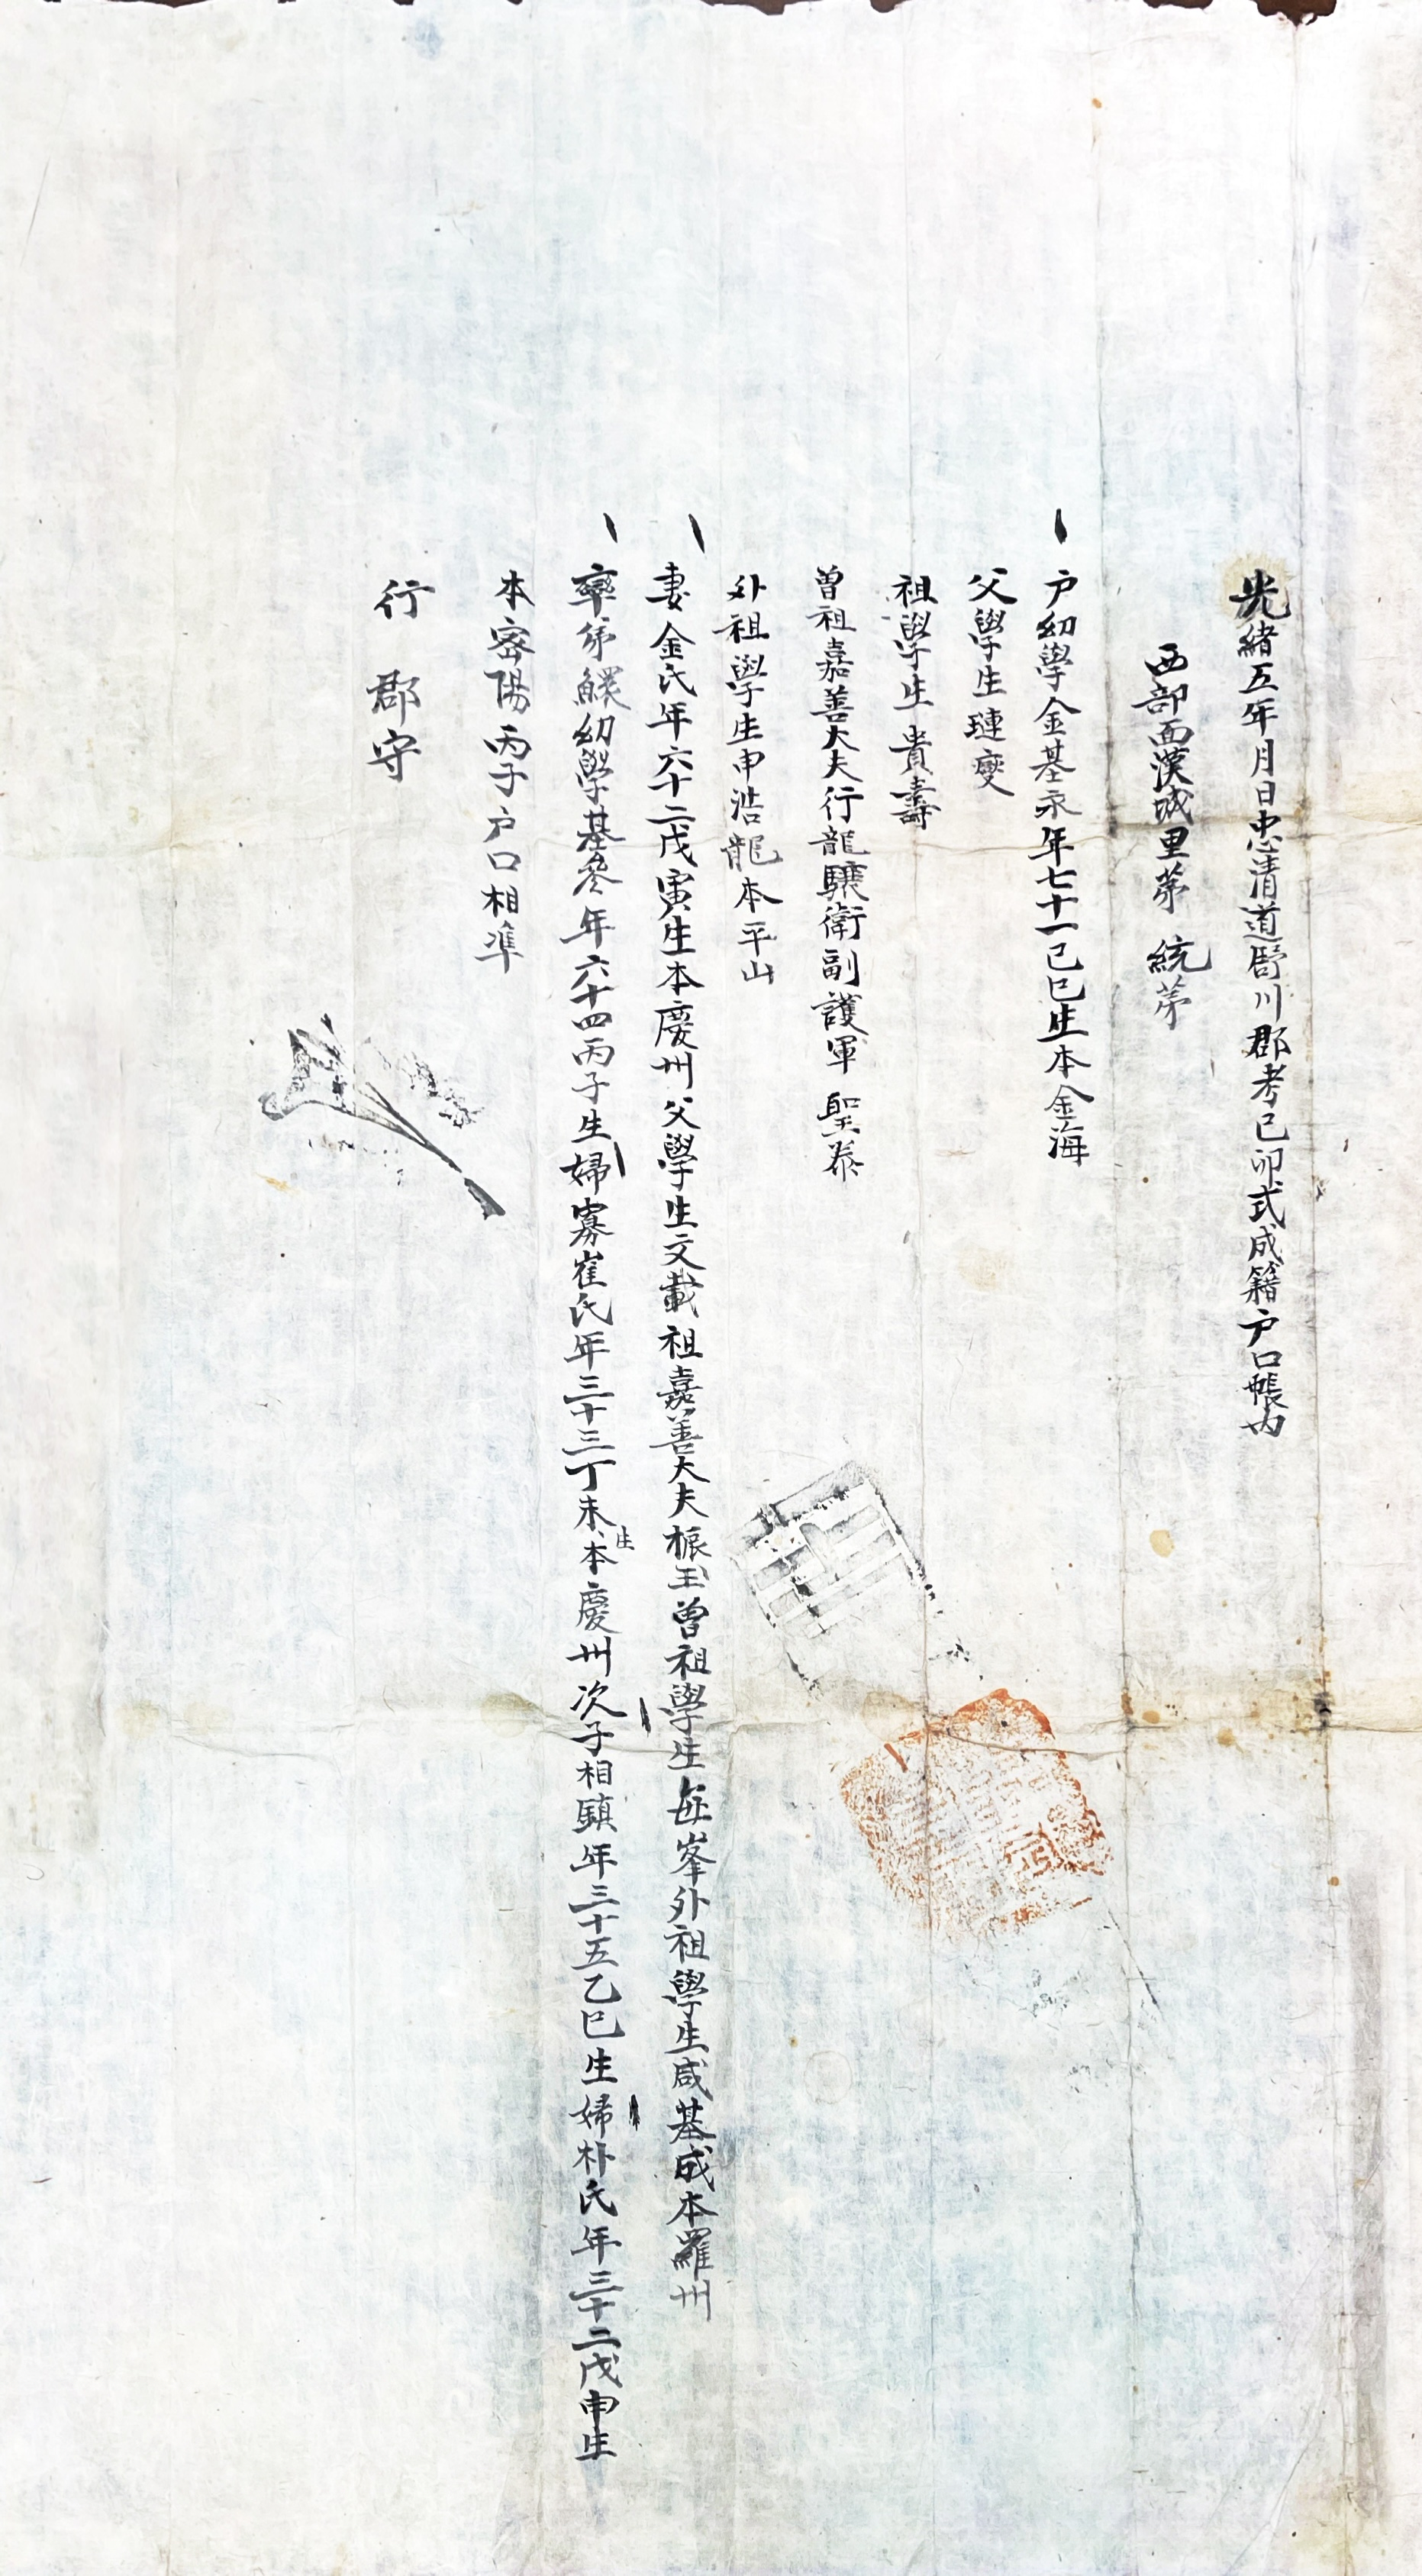 光緒五年月日忠清道舒川郡考己卯式成籍户口帳內
西部面漢城里苐 統苐
户幼學金基永年七十一己巳生本金海
父學生璉燮
祖學生貴壽
曾祖嘉善大夫行龍驤衛副護軍 聖泰
外祖學生申浩龍本平山
妻金氏年六十二戊寅生本慶州父學生文載祖嘉善大夫振玉曾祖學生每峯外祖學生咸基成本羅州
率弟鰥幼學基叅年六十四丙子生婦寡崔氏年三十三丁未生本慶州次子相鎮年三十五乙巳生婦朴氏年三十二戊申生
本密陽丙子户口相凖
行 郡守